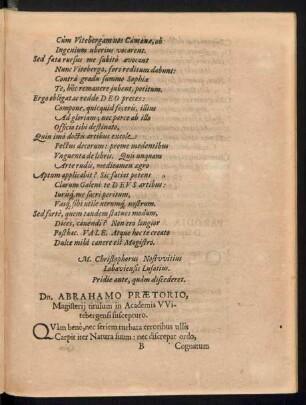 Cùm Vitebergam nos Camœnæ, ob
Ingenium uberius vocarent.
Sed fata rursus me subitò avocant
Nunc Vitebergâ, serò reditum dabunt:
Contrà gradu summo Sophiæ
Te, hîc remanere jubent, potitum.
Ergo obligatas redde DEO preces:
Compone, quicquid feceris, illius
Ad gloriam; nec parce ab illo
Officii tibi destinato.
Quin imò doctis artibus excole
Pectus decorum: prome medentibus
Unguenta de libris. Quis unquam
Arte rudis, medicamen ægro
Aptum applicabit? Sic facies potens
Clarum Galeni te DEUS artibus:
Jurisq́ me sacri peritum,
Vasq́, sibi utile utrumq́, nostrum.
Sed fortè, quem tandem statues modum,
Dices, canendi? Non ero longior
Posthac. VALE. Atque hoc te creato
Dulce mihi canere est Magistro.
M. Christophorus Nostwitius
Lobaviensis Lusatius.
Pridie ante, quàm discederet.
Dn. ABRAHAMO PRÆTORIO,
Magisterij titulum in Academia VVi-
tebergensi suscepturo.
QVàm benè, nec seriem turbata erroribus ullis
Carpit iter Natura suum: nec discrepat ordo,
B Cognatum